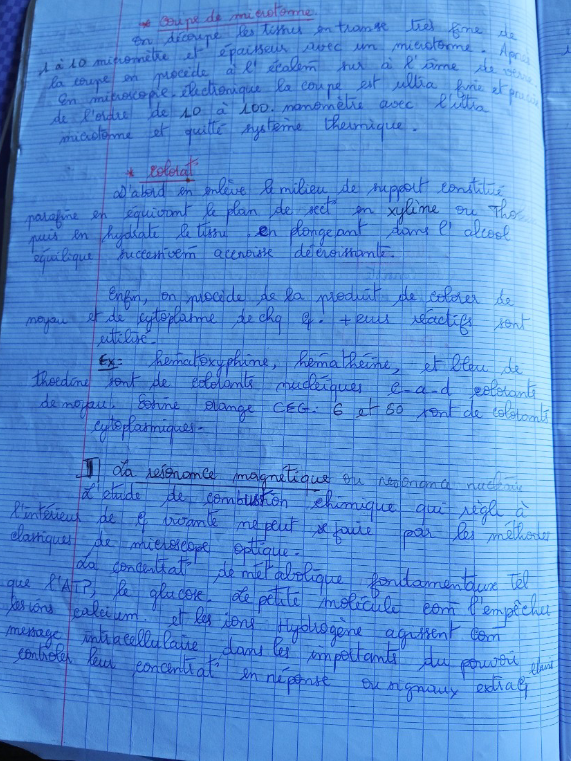 * coupe de microtome
En découpe les tissus en transe trèt fine de
1 à 10 micromètre et épaisseur avec un microtome. Après
la coupe en procède à l'écalem sur à l'âme de verre
En microscope électronique la coupe est ultra fine et
de l'ordre de 10 à 100. nanomètre avec l'ultra
microtome et quitté système thermique.
* colorat°
D'abord en enlève le milieu de support constitué
parafine en équivant le plan de sect° en xyline ou
puis en hydrate le tissu en plongeant dans l'alcool
équilique successivem décroissante.
Enfin, on procède de la produat° de colorer de
noyau et de cytoplasme de chq ¢. + eurs réactifs sont
utilise.
Ex: hématoxyphine, hémathéine, et bleu de
thoedine sont de colorants nucléiques c-a-d colorants
de noyau. orange CEG. 6 et 50 sont de colorants
cytoplasmiques.
II La resonance magnétique ou resonance nucléaire
L'etude de combustion chimique qui règli à
l'intérieur de ¢ vivante ne peut se faire par les méthodes
classiques de microscope optique.
La concentrat° de métabolique fondamentaux tel
que l'ATP, le glucose. de petite molécule com l'empêcher
les ions calcium. et les ions Hydrogène agissent com
message intracellulaire dans les importants du pouvoir
controler leur concentrat° en réponse ou signaux extra¢